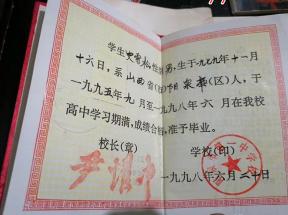 学生史雪松性别男,生于一九七九年十一月
十六日,系山西省(市)阳泉郊(区)人,于
一九九五年九月至一九九八年六月在我校
高中学习期满,成绩合格,准予毕业。
校长(章)
学校(印)
一九九八年六月二十日